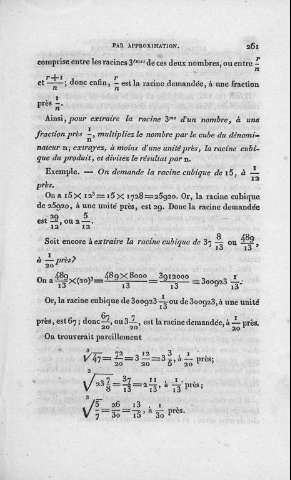 PAR APPROXIMATION. 261
comprise entre les racines 3mes de ces deux nombres, ou entre r/n
et (r+1)/n; donc enfin, r/n est la racine demandée, à une fraction
près 1/n.
Ainsi, pour extraire la racine 3me d'un nombre, à une
fraction près 1/n, multipliez le nombre par le cube du dénomi-
nateur n; extrayez, à moins d'une unité près, la racine cubi-
que du produit, et divisez le résultat par n.
Exemple. — On demande la racine cubique de 15, à 1/12
près.
On a 15 × 12³ = 15 × 1728 = 25920. Or, la racine cubique
de 25920, à une unité près, est 29. Donc la racine demandée
est 29/12, ou 2 5/12.
Soit encore à extraire la racine cubique de 37 8/13 ou 489/13,
à 1/20 près?
On a 489/13 × (20)³ = (489 × 8000)/13 = 3912000/13 = 300923 1/13.
Or, la racine cubique de 300923 1/13 ou de 300923, à une unité
près, est 67; donc 67/20, ou 3 7/20, est la racine demandée, à 1/20 près.
On trouverait pareillement
∛47 = 72/20 = 3 12/20 = 3 3/5, à 1/20 près;
∛(23 7/8) = 37/13 = 2 11/13, à 1/13 près;
∛(5/7) = 26/30 = 13/15, à 1/30 près.